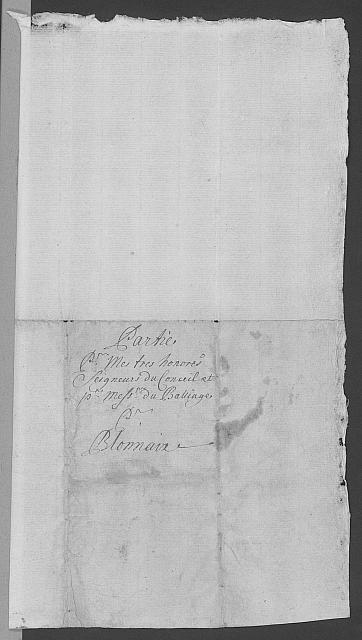 Partie
Pr Mes tres honorés
Seigneurs du Conceil et
pr Messrs du Balliage
Pr
Blonnaix